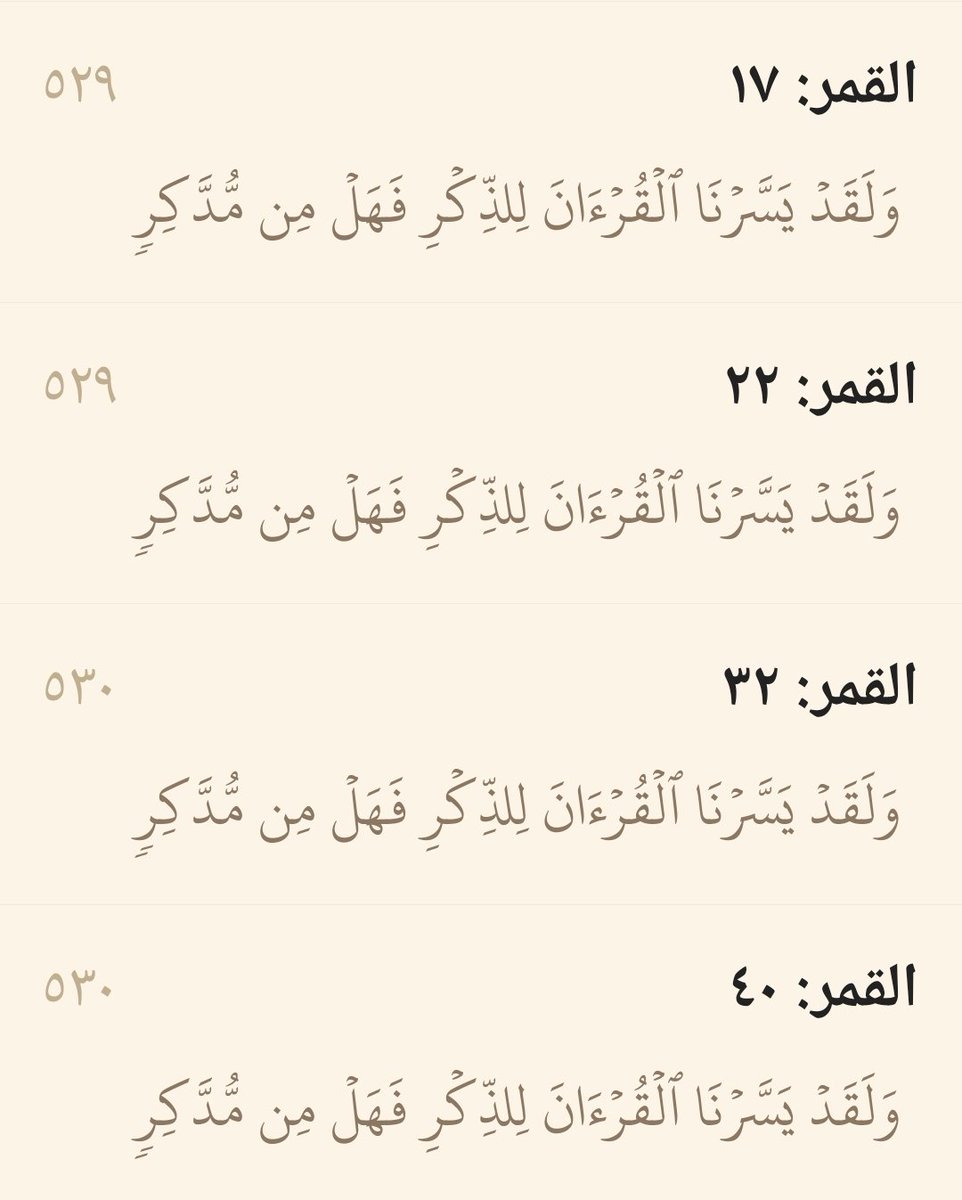 القمر: ١٧
٥٢٩
وَلَقَدۡ يَسَّرۡنَا ٱلۡقُرۡءَانَ لِلذِّكۡرِ فَهَلۡ مِن مُّدَّكِرٖ
القمر: ٢٢
٥٢٩
وَلَقَدۡ يَسَّرۡنَا ٱلۡقُرۡءَانَ لِلذِّكۡرِ فَهَلۡ مِن مُّدَّكِرٖ
القمر: ٣٢
٥٣٠
وَلَقَدۡ يَسَّرۡنَا ٱلۡقُرۡءَانَ لِلذِّكۡرِ فَهَلۡ مِن مُّدَّكِرٖ
القمر: ٤٠
٥٣٠
وَلَقَدۡ يَسَّرۡنَا ٱلۡقُرۡءَانَ لِلذِّكۡرِ فَهَلۡ مِن مُّدَّكِرٖ